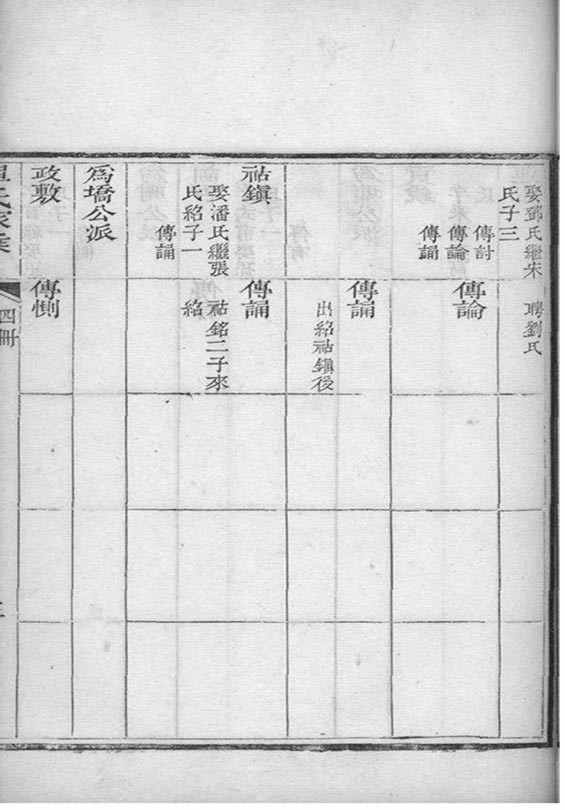 娶鄧氏繼宋
氏子三
傳討
傳論
傳誦
祜鎭
娶潘氏繼張
氏紹子一
傳誦
爲墧公派
政敷
聘劉氏
傳論
傳誦
出紹祜鎭後
傳誦
祜銘二子來
紹
傳惻
四冊